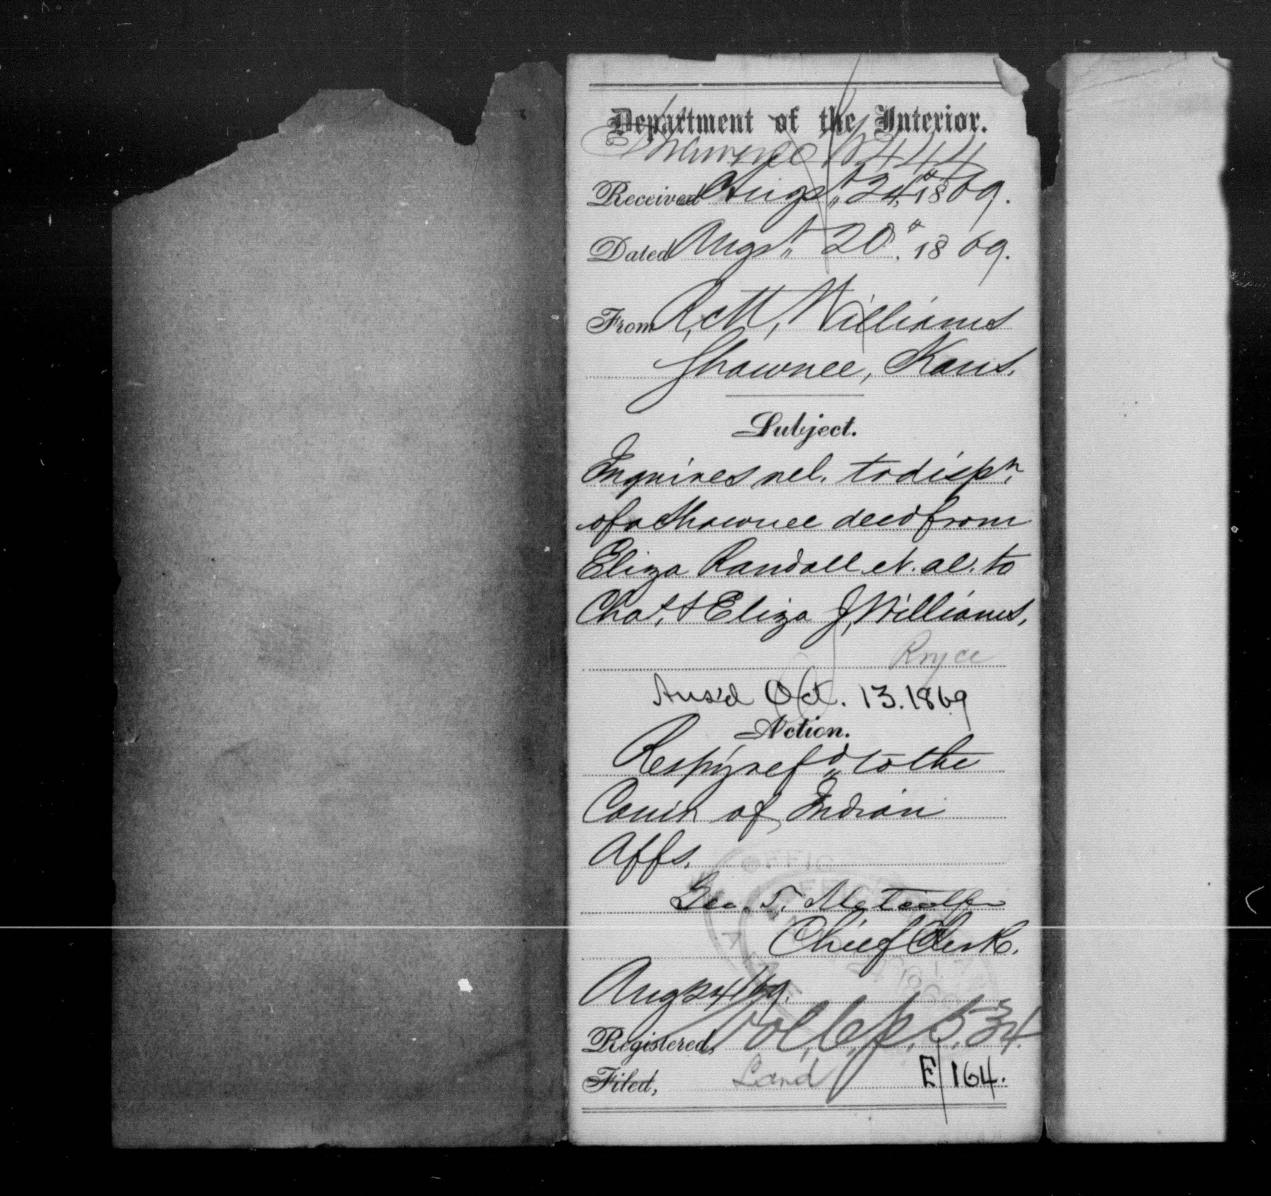 Department of the Interior.
Shawnee W 444
Received Augst 24, 1869.
Dated Augst 20, 1869.
From R. M. Williams
Shawnee, Kans.
Subject.
Inquires rel. to dispn
of a Shawnee deed from
Eliza Randall et. al. to
Chas. & Eliza J. Williams,
Royce
Ans'd Oct. 13. 1869
Action.
Respy refd to the
Comr of Indian
Affs.
Geo. T. Metcalfe
Chief Clerk.
Aug 24/69.
Registered, Vol, 6, p, 534.
Filed, Land E/164.